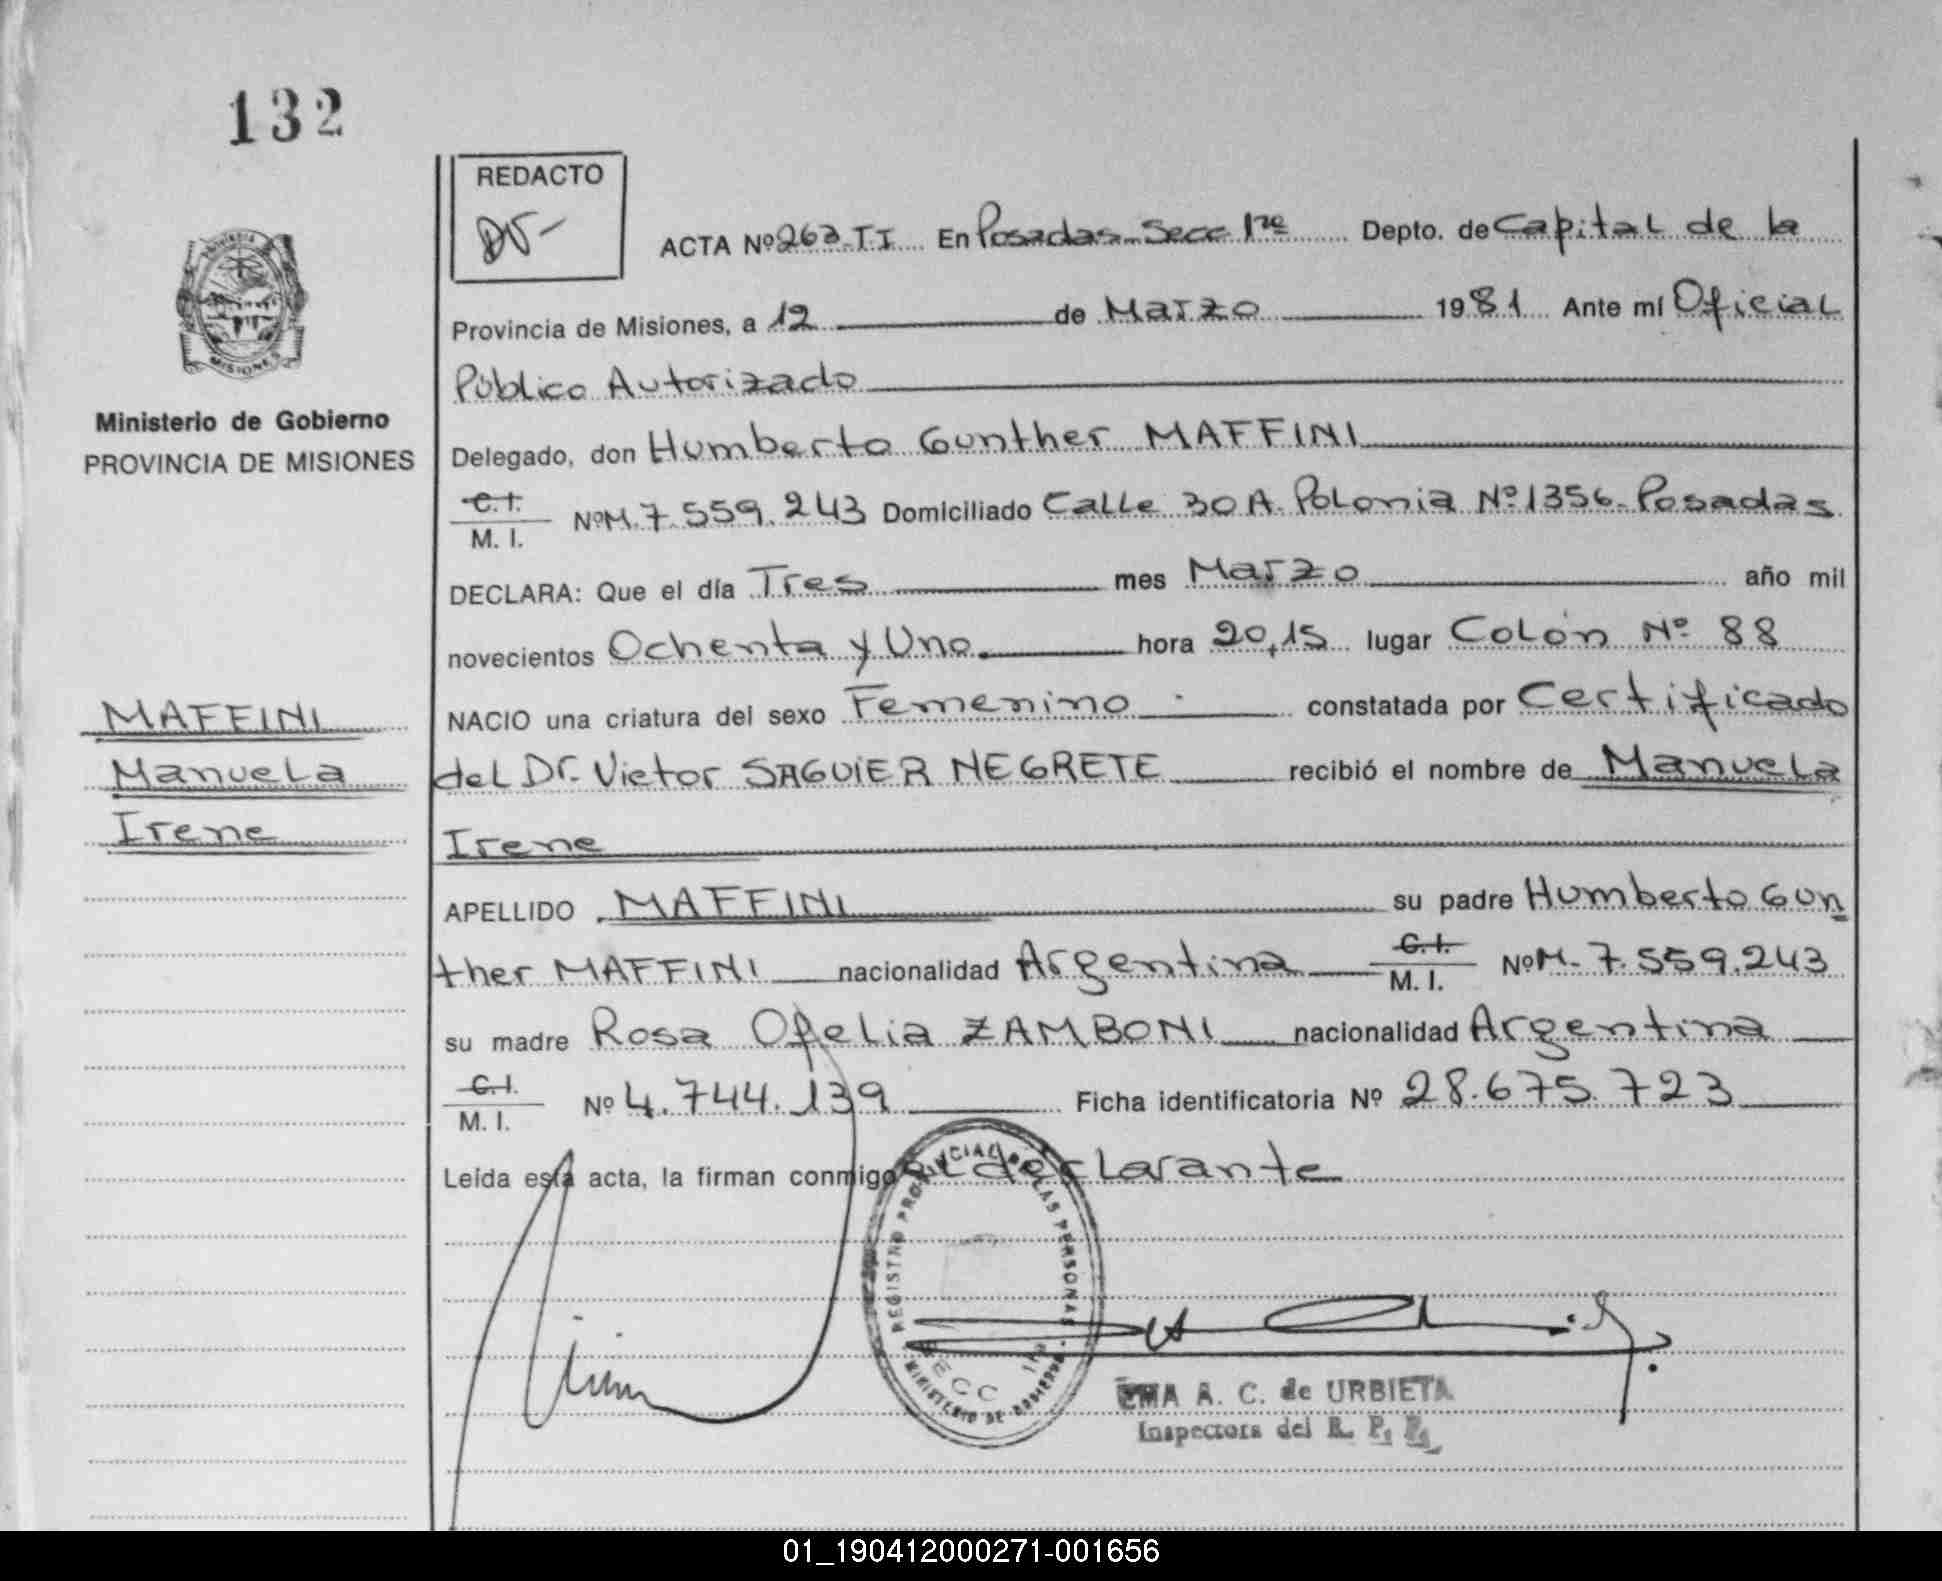 132
REDACTO
ACTA Nº 263-TI En Posadas-Secc 1ra Depto. de Capital de la
Provincia de Misiones, a 12 de Marzo 1981 Ante mí Oficial
Público Autorizado
Delegado, don Humberto Gunther MAFFINI
C.I.
M. I. Nº M.7.559.243 Domiciliado Calle 30 A Polonia Nº 1356-Posadas
DECLARA: Que el día Tres mes Marzo año mil
novecientos Ochenta y Uno. hora 20,15 lugar Colón Nº 88
NACIO una criatura del sexo Femenino constatada por Certificado
del Dr. Victor SAGUIER NEGRETE recibió el nombre de Manuela
Irene
APELLIDO MAFFINI su padre Humberto Gun
ther MAFFINI nacionalidad Argentina C.I. M. I. Nº M-7.559.243
su madre Rosa Ofelia ZAMBONI nacionalidad Argentina
C.I.
M. I. Nº 4.744.139 Ficha identificatoria Nº 28.675.723
Leída esta acta, la firman conmigo el declarante
PROVINCIA DE
MISIONES
Ministerio de Gobierno
PROVINCIA DE MISIONES
MAFFINI
Manuela
Irene
REGISTRO PROVINCIAL DE LAS PERSONAS
SECC 1ra
MINISTERIO DE GOBIERNO
EMA A. C. de URBIETA
Inspectora del R. P. P.
01_190412000271-001656